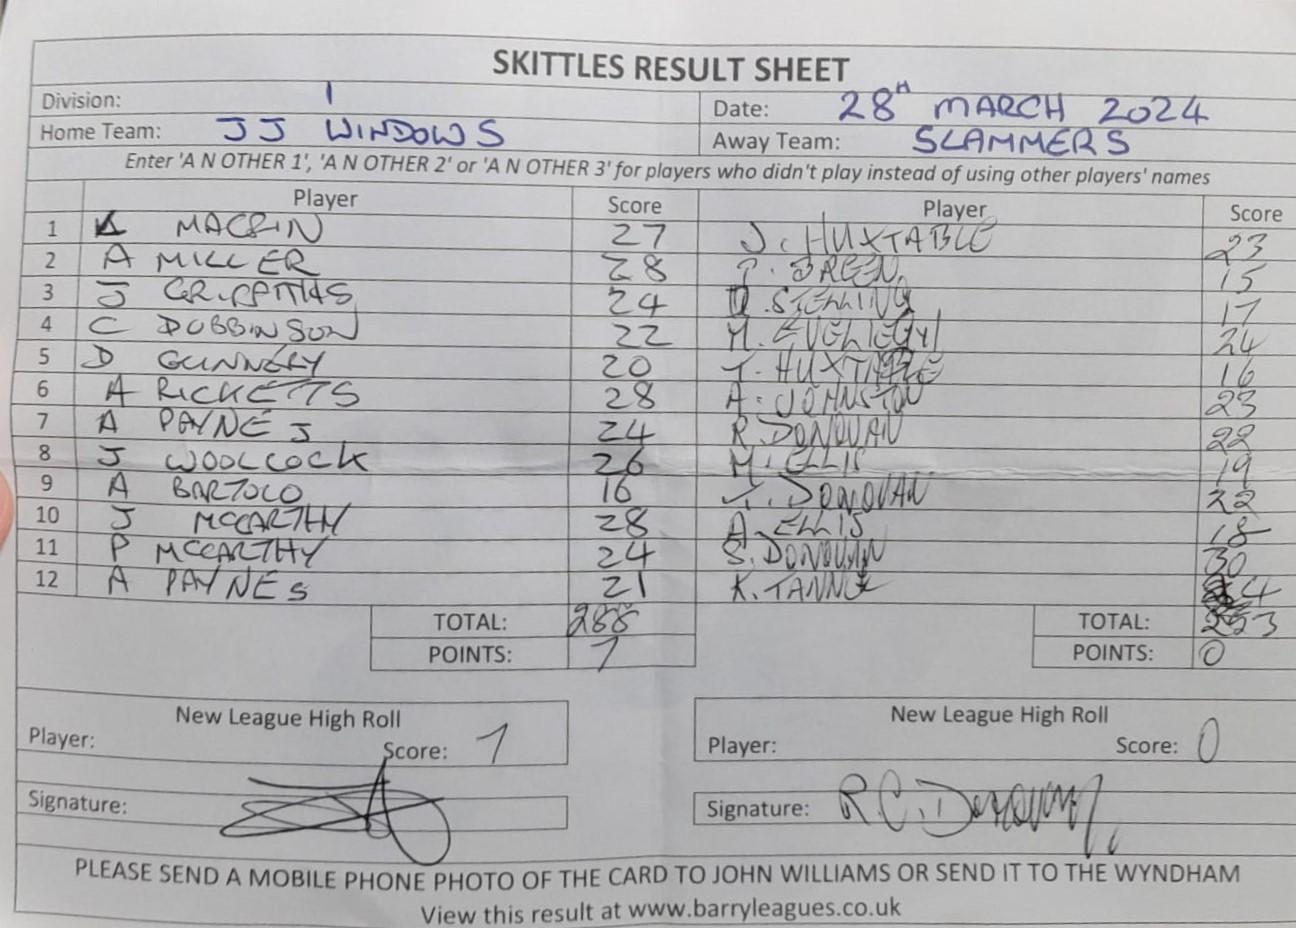 SKITTLES RESULT SHEET
Division: 1 Date: 28TH MARCH 2024
Home Team: JJ WINDOWS Away Team: SLAMMERS
Enter 'A N OTHER 1', 'A N OTHER 2' or 'A N OTHER 3' for players who didn't play instead of using other players' names
Player Score Player Score
1 K 27 J. HUXTABLE 23
2 A MILLER 28 BREEN 15
3 J GRIFFITHS 24 17
4 C DOBBINSON 22 M. 24
5 D GUNNERY 20 T. HUXTABLE 16
6 A RICKETTS 28 A. JOHNSTON 23
7 A PAYNE J 24 R. DONOVAN 22
8 J WOOLCOCK 26 M. ELLIS 19
9 A BARTOLO 16 T. DONOVAN 22
10 J MCCARTHY 28 A. ELLIS 18
11 P MCCARTHY 24 S. DONOVAN 30
12 A PAYNE S 21 K.
TOTAL: 288 TOTAL: 253
POINTS: 7 POINTS: 0
New League High Roll New League High Roll
Player: Score: 7 Player: Score: 0
Signature: Signature: R.C. Donovan
PLEASE SEND A MOBILE PHONE PHOTO OF THE CARD TO JOHN WILLIAMS OR SEND IT TO THE WYNDHAM
View this result at www.barryleagues.co.uk